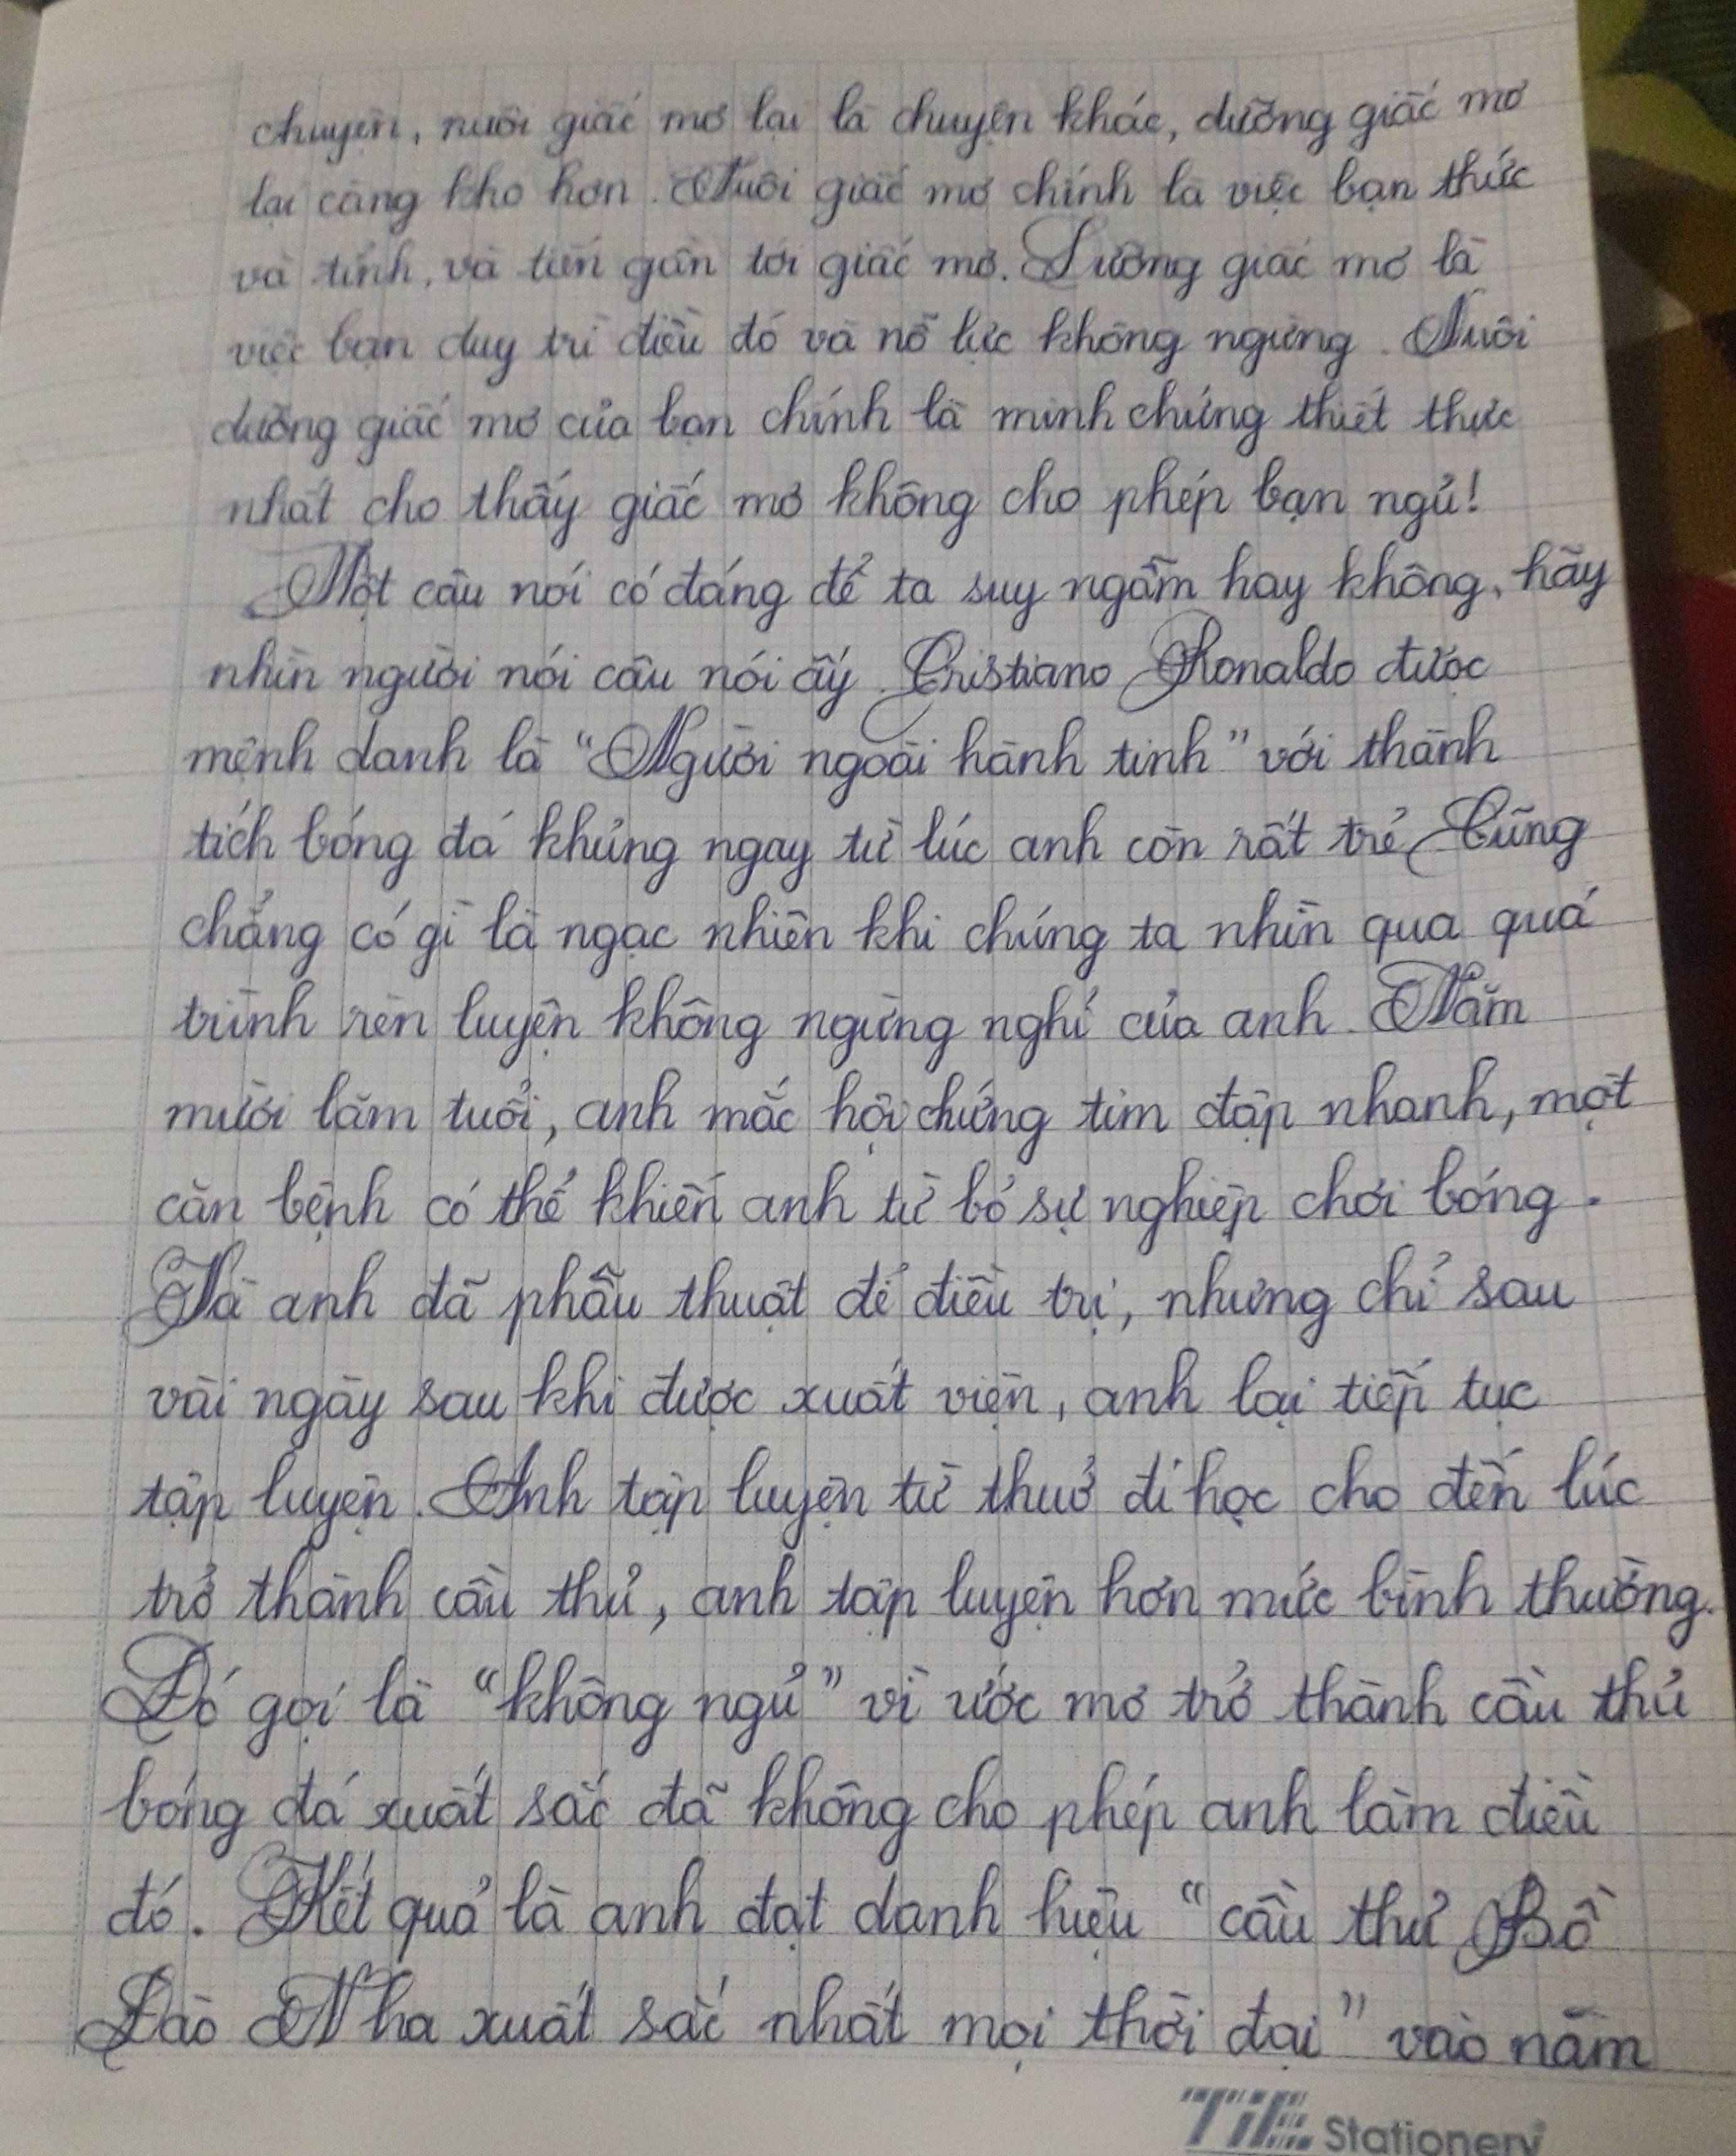 chuyện, nuôi giấc mơ lại là chuyện khác, dưỡng giấc mơ
lại càng khó hơn. Nuôi giấc mơ chính là việc bạn thức
và tỉnh, và tiến gần tới giấc mơ. Dưỡng giấc mơ là
việc bạn duy trì điều đó và nỗ lực không ngừng. Nuôi
dưỡng giấc mơ của bạn chính là minh chứng thiết thực
nhất cho thấy giấc mơ không cho phép bạn ngủ!
Một câu nói có đáng để ta suy ngẫm hay không, hãy
nhìn người nói câu nói ấy. Cristiano Ronaldo được
mệnh danh là "Người ngoài hành tinh" với thành
tích bóng đá khủng ngay từ lúc anh còn rất trẻ. Cũng
chẳng có gì là ngạc nhiên khi chúng ta nhìn qua quá
trình rèn luyện không ngừng nghỉ của anh. Năm
mười lăm tuổi, anh mắc hội chứng tim đập nhanh, một
căn bệnh có thể khiến anh từ bỏ sự nghiệp chơi bóng.
Và anh đã phẫu thuật để điều trị, nhưng chỉ sau
vài ngày sau khi được xuất viện, anh lại tiếp tục
tập luyện. Anh tập luyện từ thuở đi học cho đến lúc
trở thành cầu thủ, anh tập luyện hơn mức bình thường.
Đó gọi là "không ngủ" vì ước mơ trở thành cầu thủ
bóng đá xuất sắc đã không cho phép anh làm điều
đó. Kết quả là anh đạt danh hiệu "cầu thủ Bồ
Đào Nha xuất sắc nhất mọi thời đại" vào năm
TiE Stationery